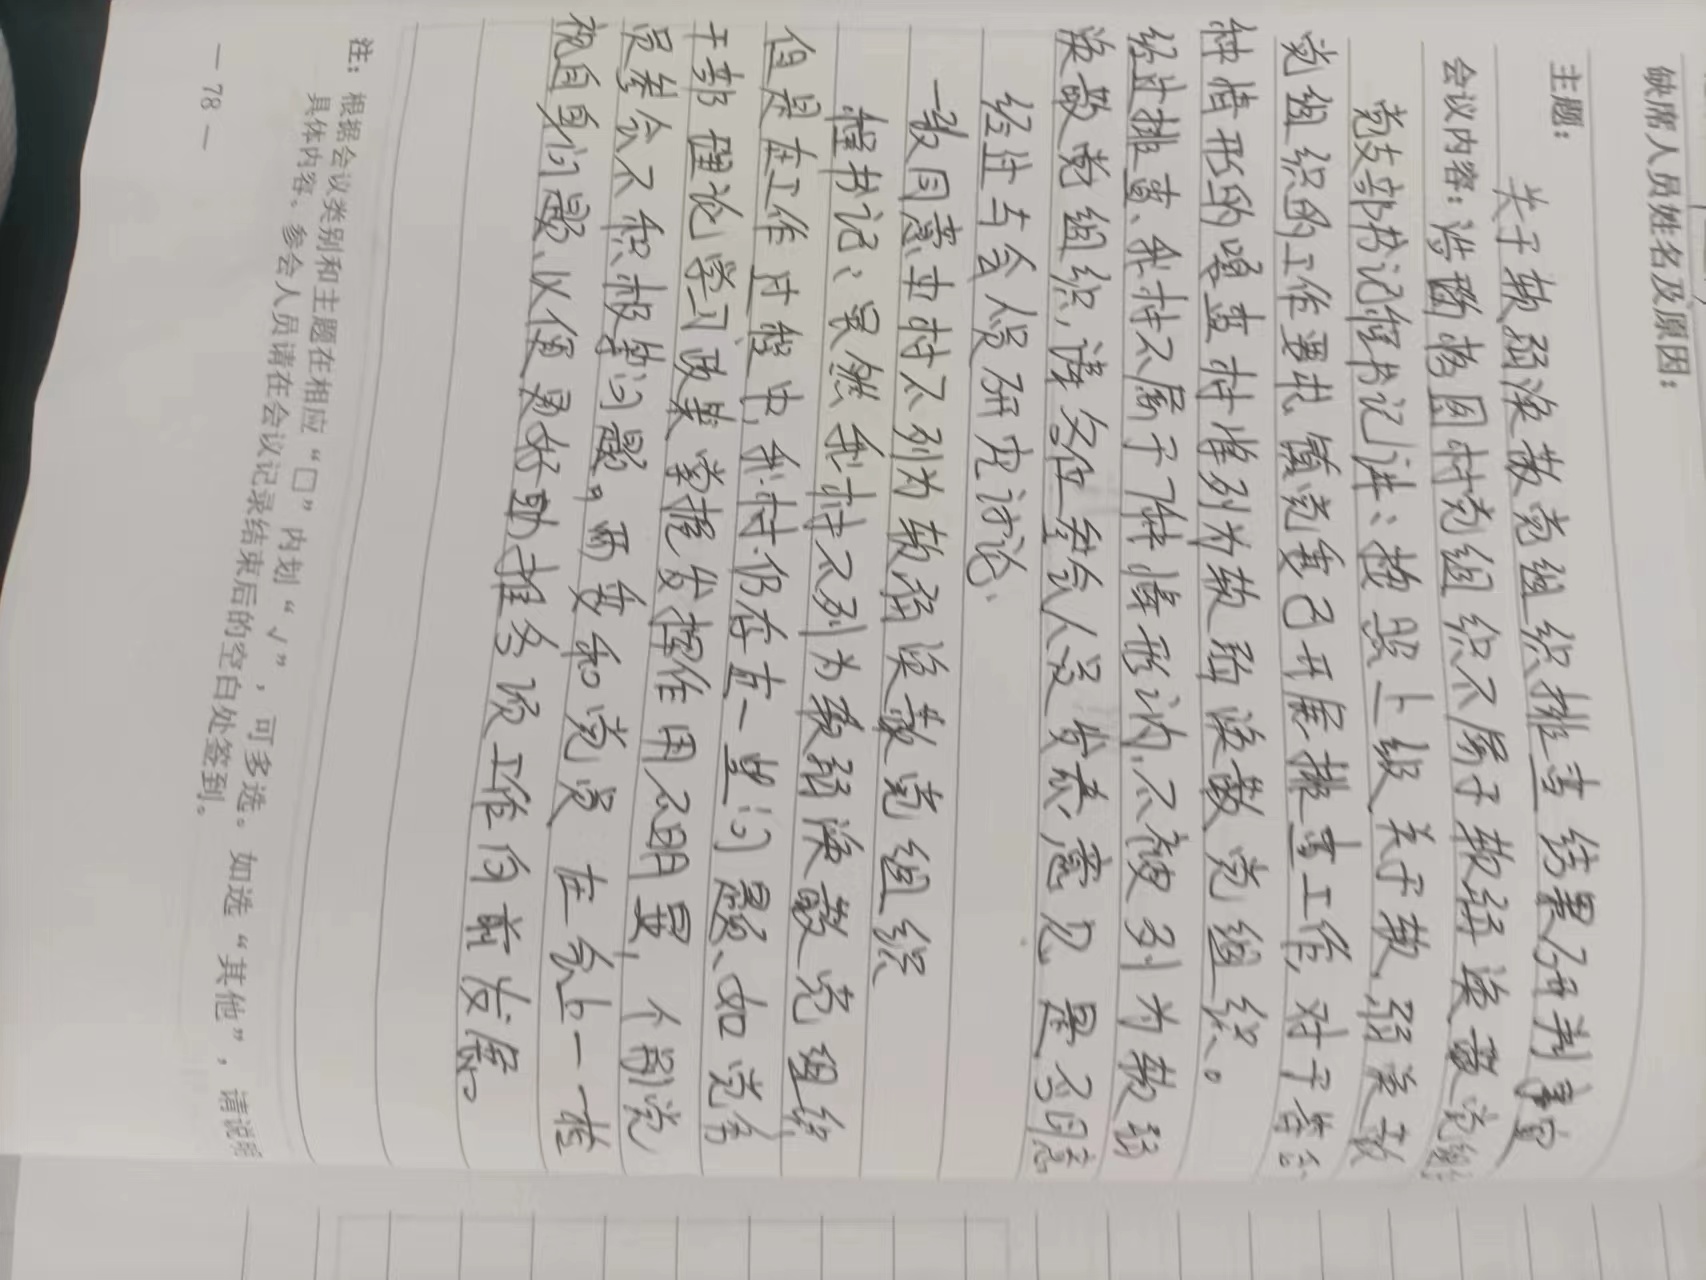 缺席人员姓名及原因：
主题：
关于软弱涣散党组织排查结果研判事宜
会议内容：涝 村党组织不属于软弱涣散党组织
党支部书记程书记讲：按照上级关于软弱涣散
党组织的工作要求，镇党委已开展排查工作，对于符合
种情形的调查村将列为软弱涣散党组织。
经过排查，我村不属于7种情形内，不被列为软弱
涣散党组织，请各位参会人员发表意见，是不同意
经过与会人员研究讨论，
一致同意本村不列为软弱涣散党组织
程书记：虽然我村不列为软弱涣散党组织
但是在工作过程中，我村仍存在一些问题，如党员
干部理论学习政策掌握发挥作用不明显，个别党
员参会不积极等问题。两委和党员在会上一一检
视自身问题，以便更好地推动各项工作向前发展。
注：根据会议类别和主题在相应“□”内划“√”，可多选。如选“其他”，请说明
具体内容。参会人员请在会议记录结束后的空白处签到。
— 78 —